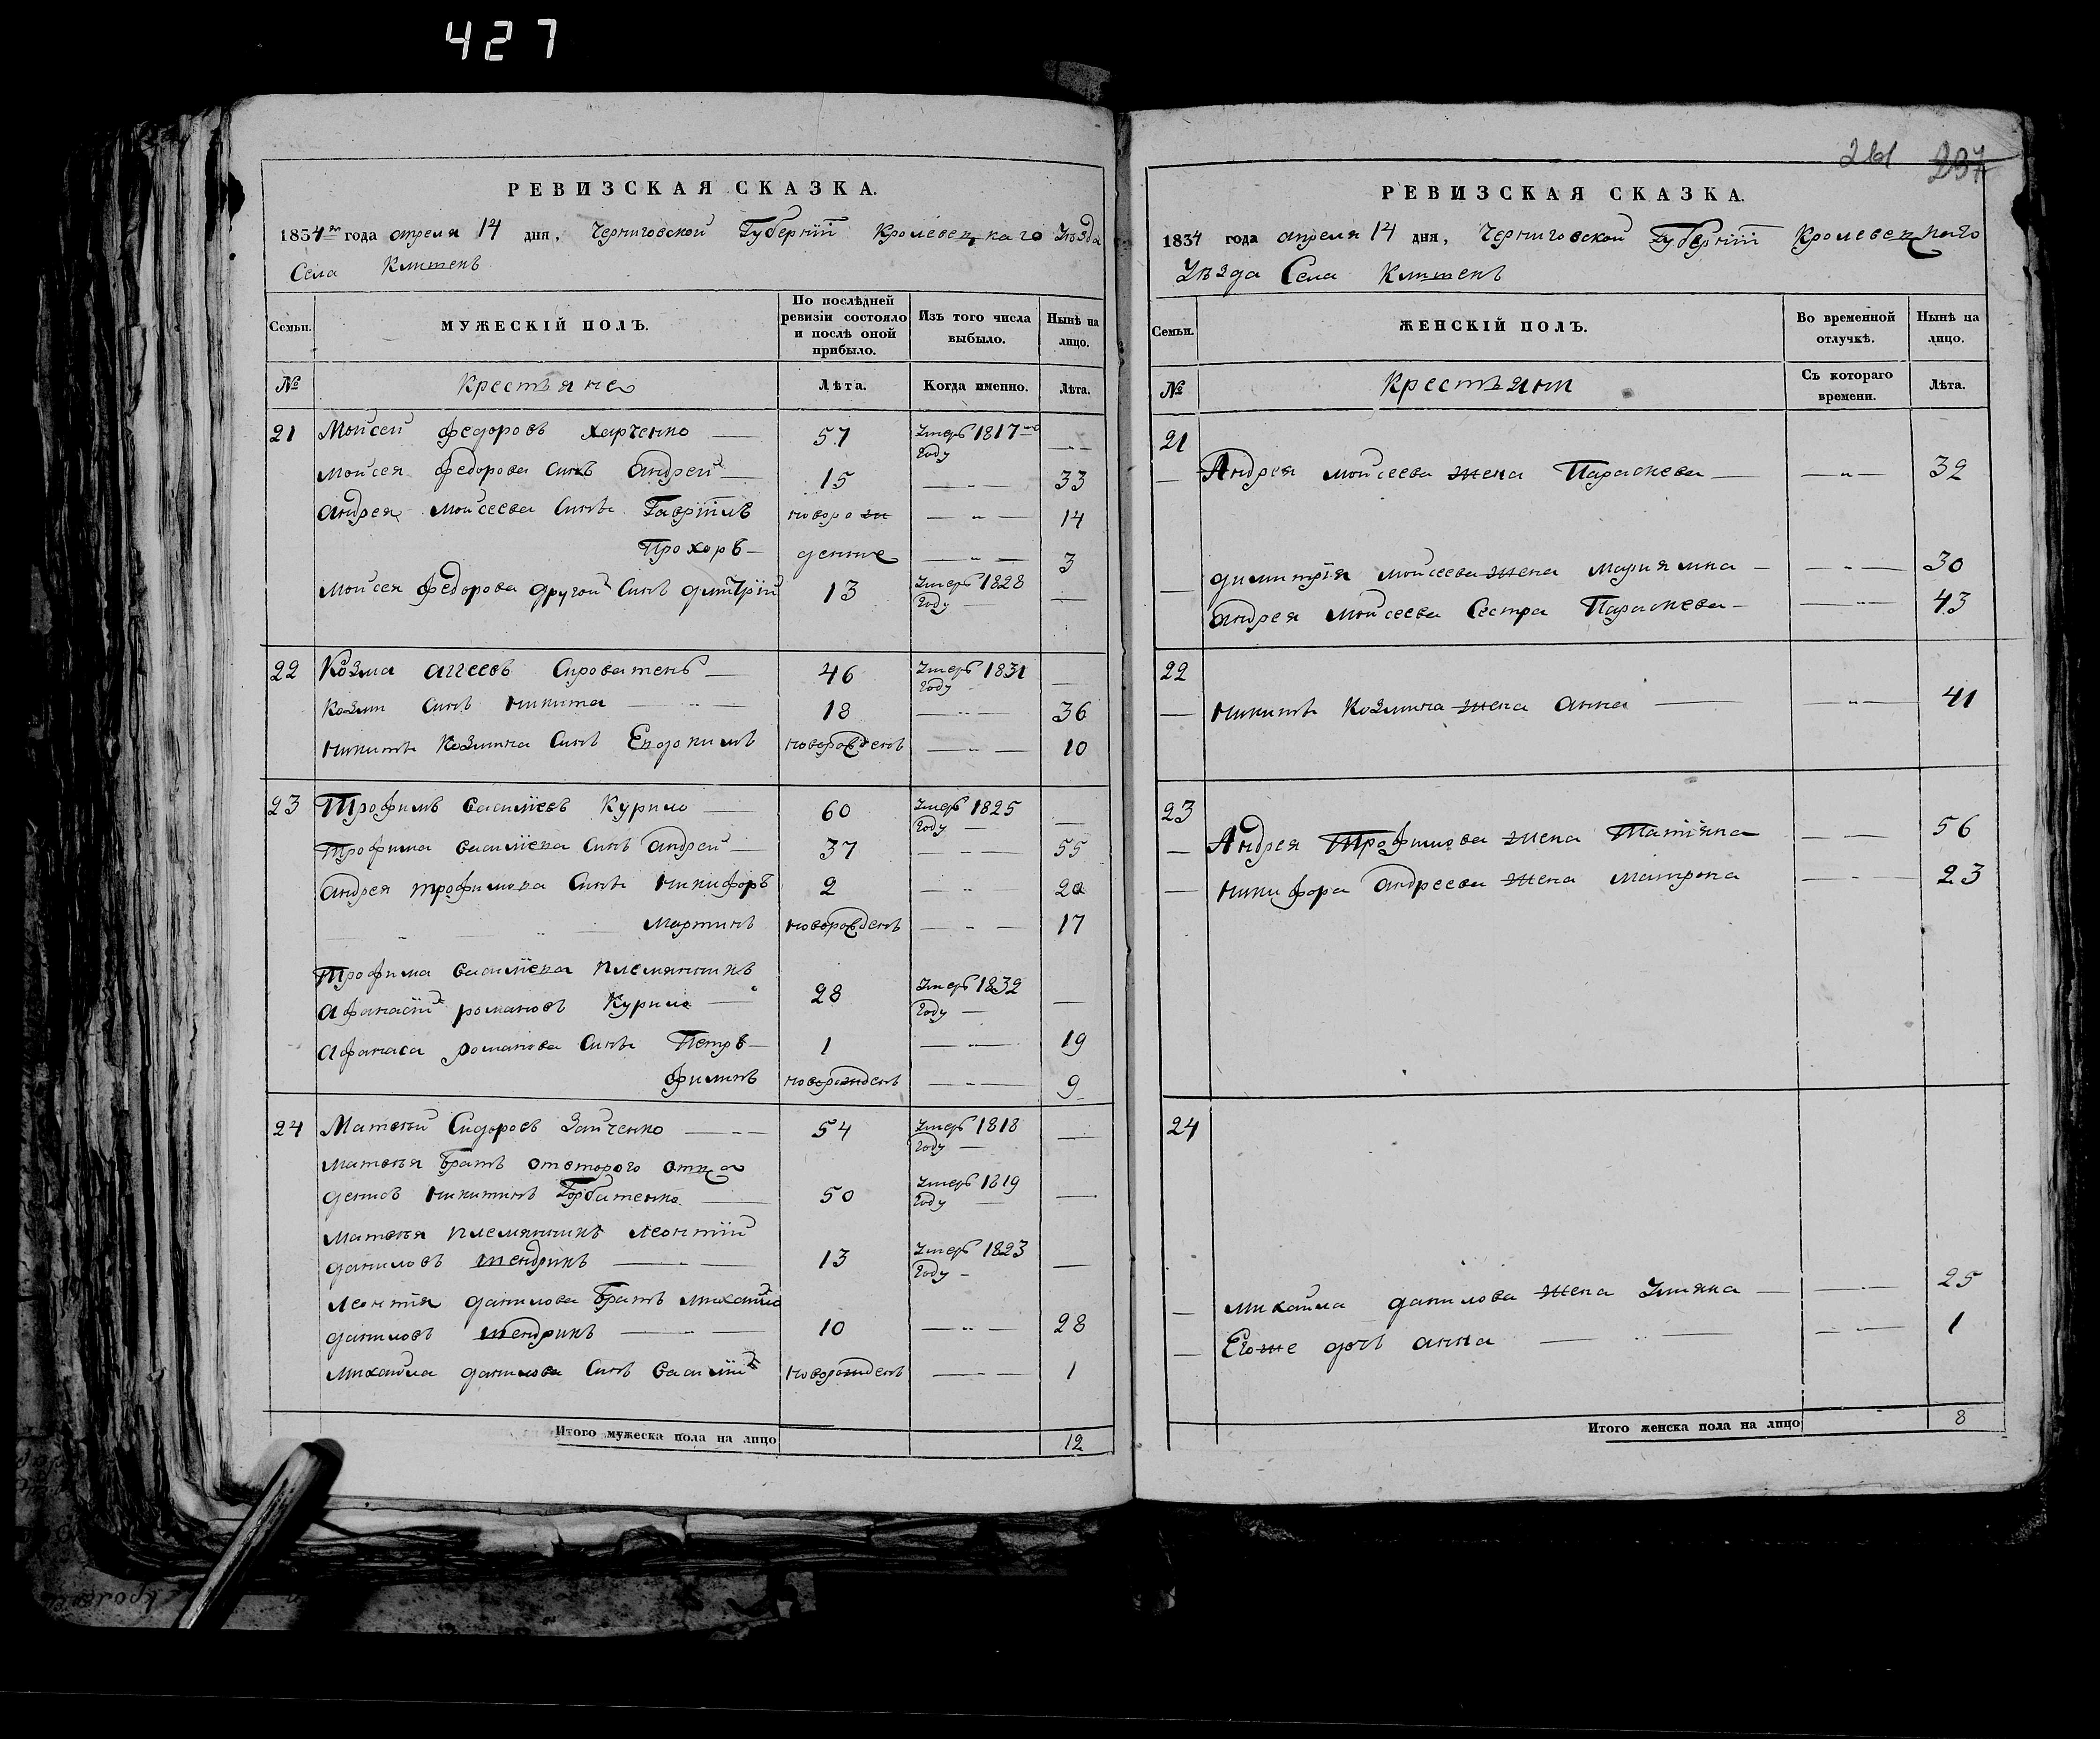 427
РЕВИЗСКАЯ СКАЗКА.
1834го года апреля 14 дня, Черниговской Губернїи Кролевецкаго Уѣзда
Села Клитенъ
Семьи. МУЖЕСКІЙ ПОЛЪ. По послѣдней ревизіи состояло и послѣ оной прибыло. Изъ того числа выбыло. Нынѣ на лицо.
№ Крестьяне Лѣта. Когда именно. Лѣта.
21 Мойсей Федоровъ Харченко — 57 Умеръ 1817го Году —
Мойсея Федорова Сынъ Андрей — 15 — 33
Андрея Мойсеева Сынъ Гаврїилъ новорож 14
Прохоръ — денные — 3
Мойсея Федорова другой Сынъ Димитрїй 13 Умеръ 1828 Году —
22 Козма Аггеевъ Сироватень — 46 Умеръ 1831 Году —
Козми Сынъ Никита — 18 — 36
Никиты Козмина Сынъ Евдокимъ новорожденъ — 10
23 Трофимъ Василїевъ Курило — 60 Умеръ 1825 Году —
Трофима Василїева Сынъ Андрей — 37 — 55
Андрея Трофимова Сынъ Никифоръ 2 — 20
Мартинъ новорожденъ — 17
Трофима Василїева племянникъ
Афанасїй Романовъ Курило — 28 Умеръ 1832 Году —
Афанаса Романова Сынъ Петръ — 1 — 19
Филипъ новорожденъ — 9
24 Матвѣй Сидоровъ Зайченко — 54 Умеръ 1818 Году —
Матвѣя братъ отвторого отца
Денисъ Никитинъ Горбатенко — 50 Умеръ 1819 Году —
Матвѣя племянникъ Леонтїй
Даниловъ Шендрикъ — 13 Умеръ 1823 Году —
Леонтїя Данилова братъ Михайло
Даниловъ Шендрикъ — 10 — 28
Михайла Данилова Сынъ Василїй новорожденъ — 1
Итого мужеска пола на лицо 12
261 237
РЕВИЗСКАЯ СКАЗКА.
1834 года апреля 14 дня, Черниговской Губернїи Кролевецкаго
Уѣзда Села Клитенъ
Семьи. ЖЕНСКІЙ ПОЛЪ. Во временной отлучкѣ. Нынѣ на лицо.
№ Крестьянки Съ котораго времени. Лѣта.
21
— Андрея Мойсеева жена Параскева — 32
— Димитрїя Мойсеева жена Мариянна — 30
Андрея Мойсеева Сестра Параскева — 43
22
— Никиты Козмина жена Анна — 41
23
— Андрея Трофимова жена Татїяна — 56
— Никифора Андреева жена Матрона — 23
24
— Михайла Данилова жена Улияна — 25
— Егоже дочь Анна — 1
Итого женска пола на лицо 8